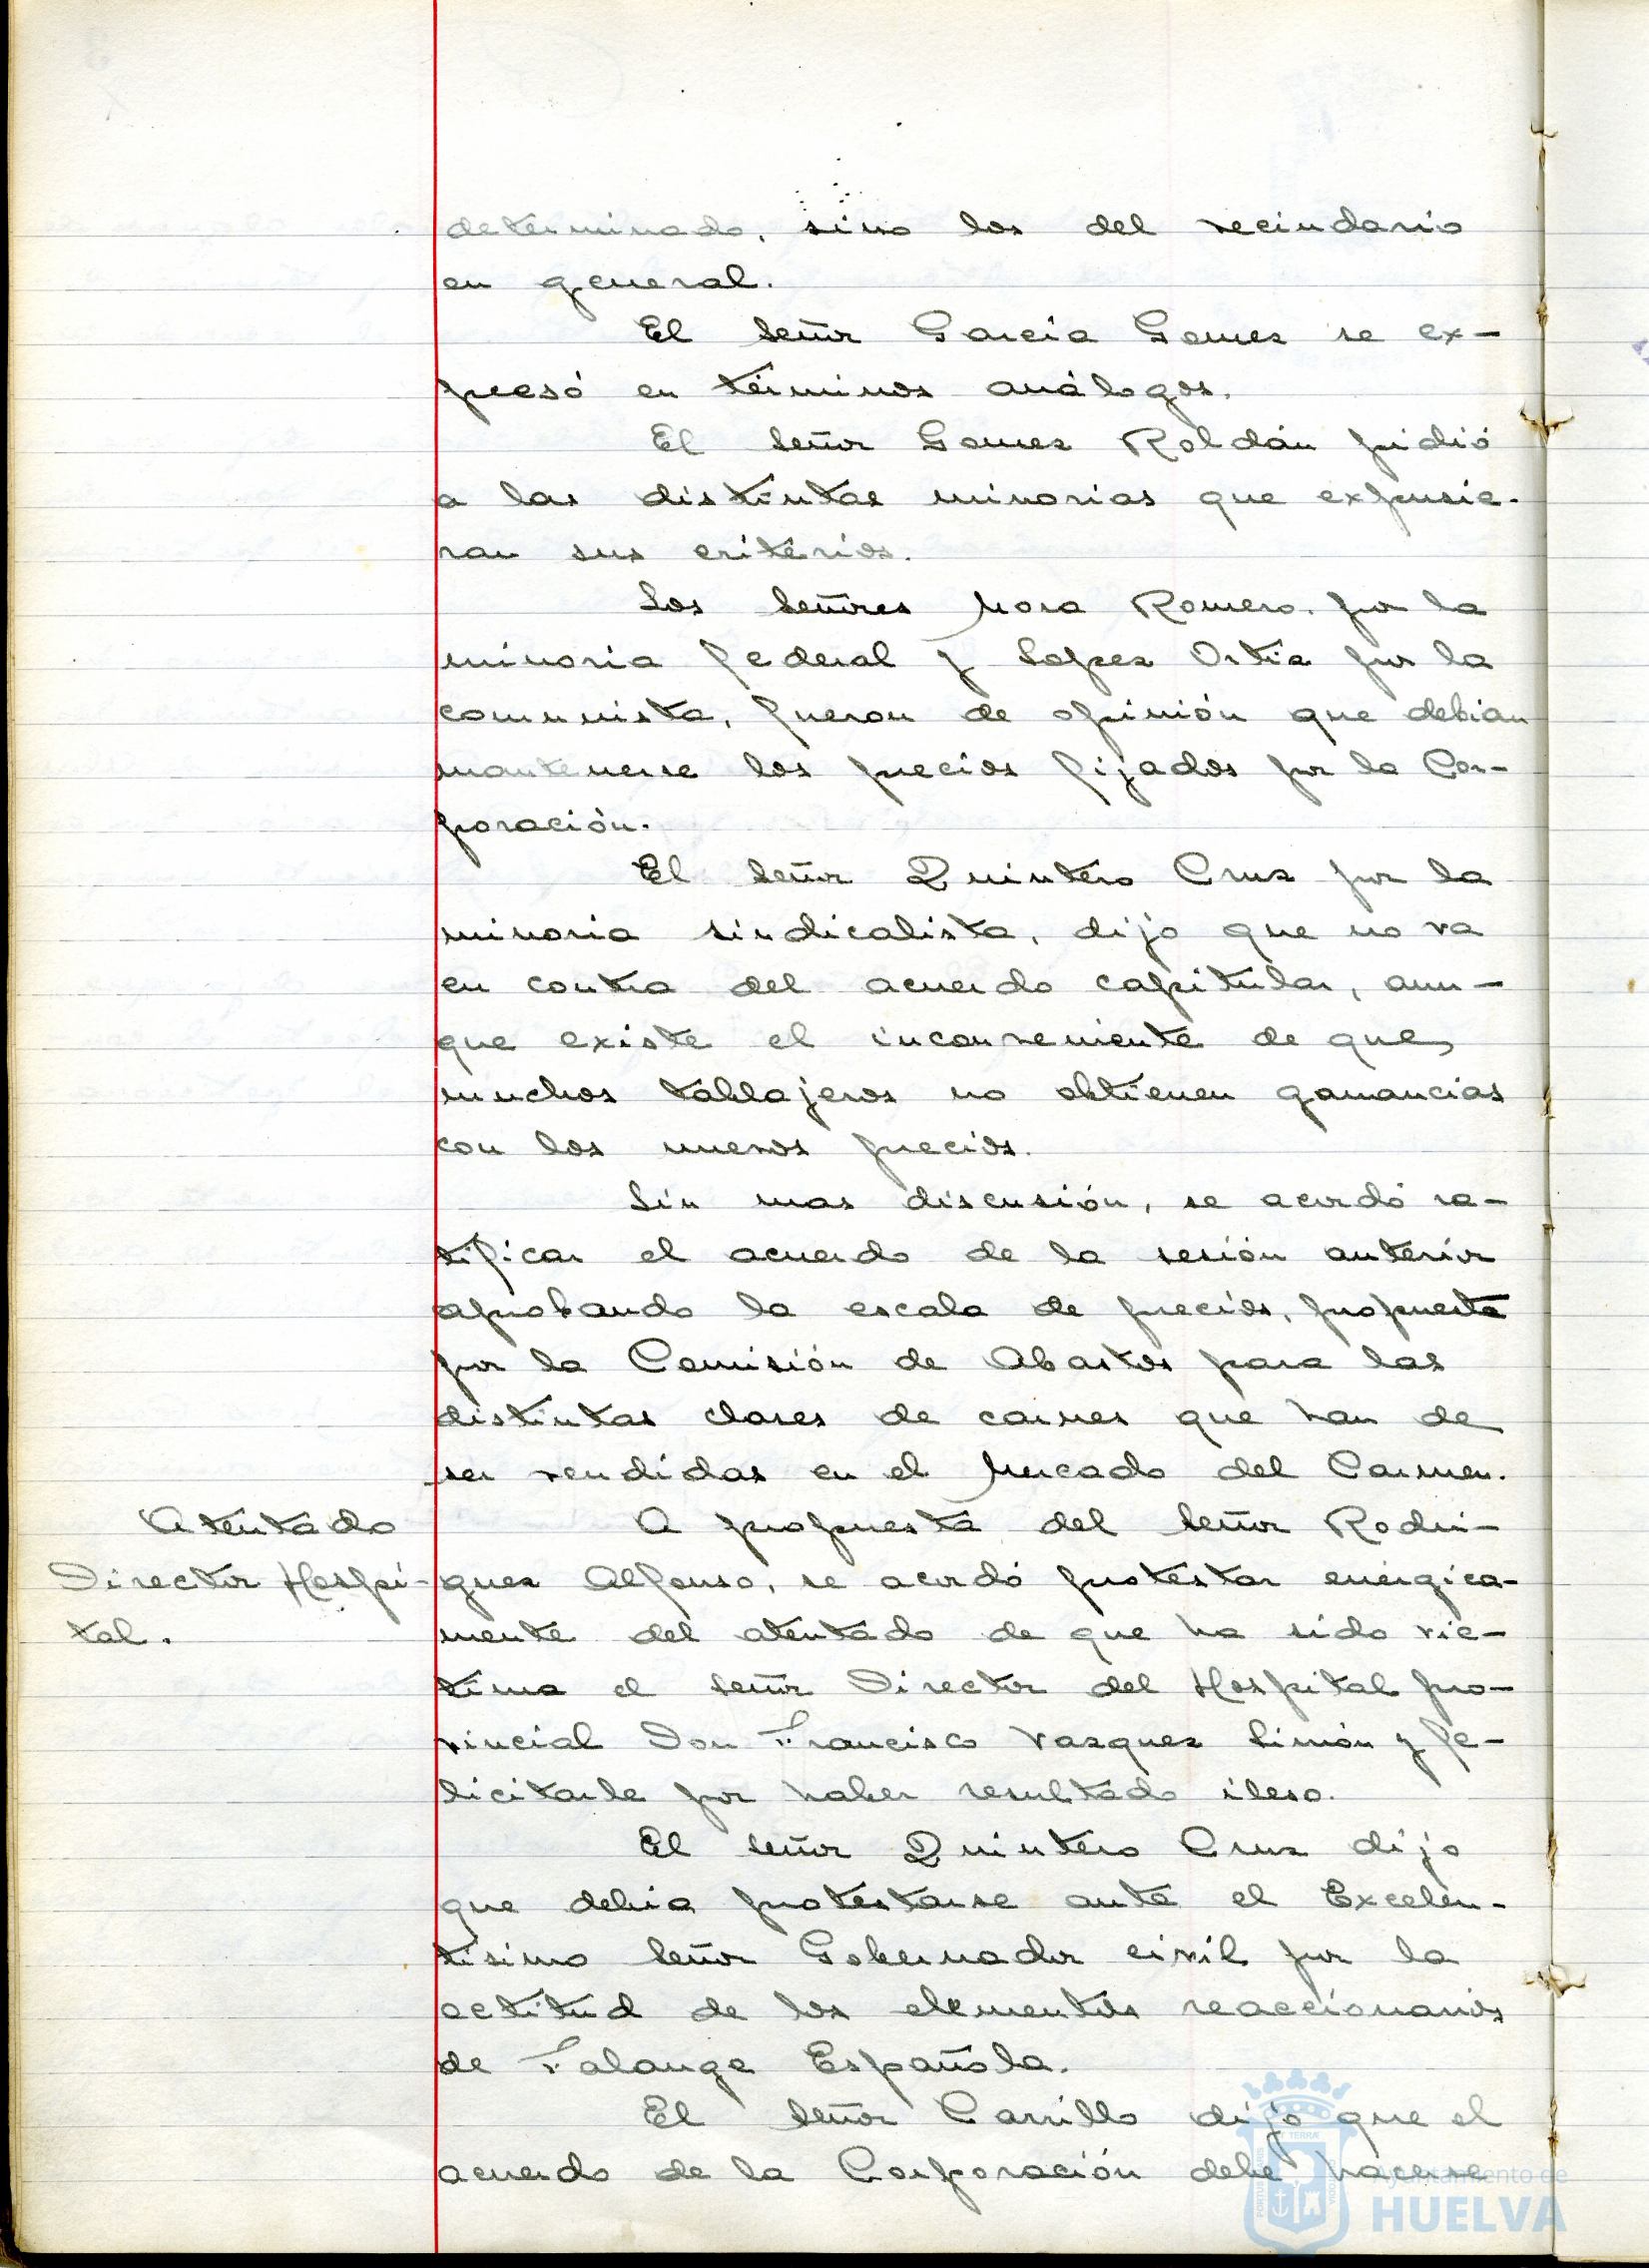 determinado, sino los del vecindario
en general.
El Señor García Gomez se ex-
presó en términos análogos.
El Señor Gomez Roldán pidió
a las distintas minorias que expusie-
ran sus criterios.
Los Señores Mora Romero, por la
minoria federal y Lopez Ortiz por la
comunista, fueron de opinión que debian
mantenerse los precios fijados por la Cor-
poración.
El Señor Quintero Cruz por la
minoria sindicalista, dijo que no va
en contra del acuerdo capitular, aun-
que existe el inconveniente de que
muchos tablajeros no obtienen ganancias
con los nuevos precios.
Sin mas discusión, se acordó ra-
tificar el acuerdo de la sesión anterior
aprobando la escala de precios, propuesta
por la Comisión de Abastos para las
distintas clases de carnes que han de
ser vendidas en el Mercado del Carmen.
Atentado
Director Hospi-
tal.
A propuesta del Señor Rodri-
guez Alfonso, se acordó protestar enérgica-
mente del atentado de que ha sido vic-
tima el Señor Director del Hospital pro-
vincial Don Francisco Vazquez Limón y fe-
licitarle por haber resultado ileso.
El Señor Quintero Cruz dijo
que debia protestarse ante el Excelen-
tísimo Señor Gobernador civil por la
actitud de los elementos reaccionarios
de Falange Española.
El Señor Carrillo dijo que el
acuerdo de la Corporación debe hacerse
Ayuntamiento de
HUELVA